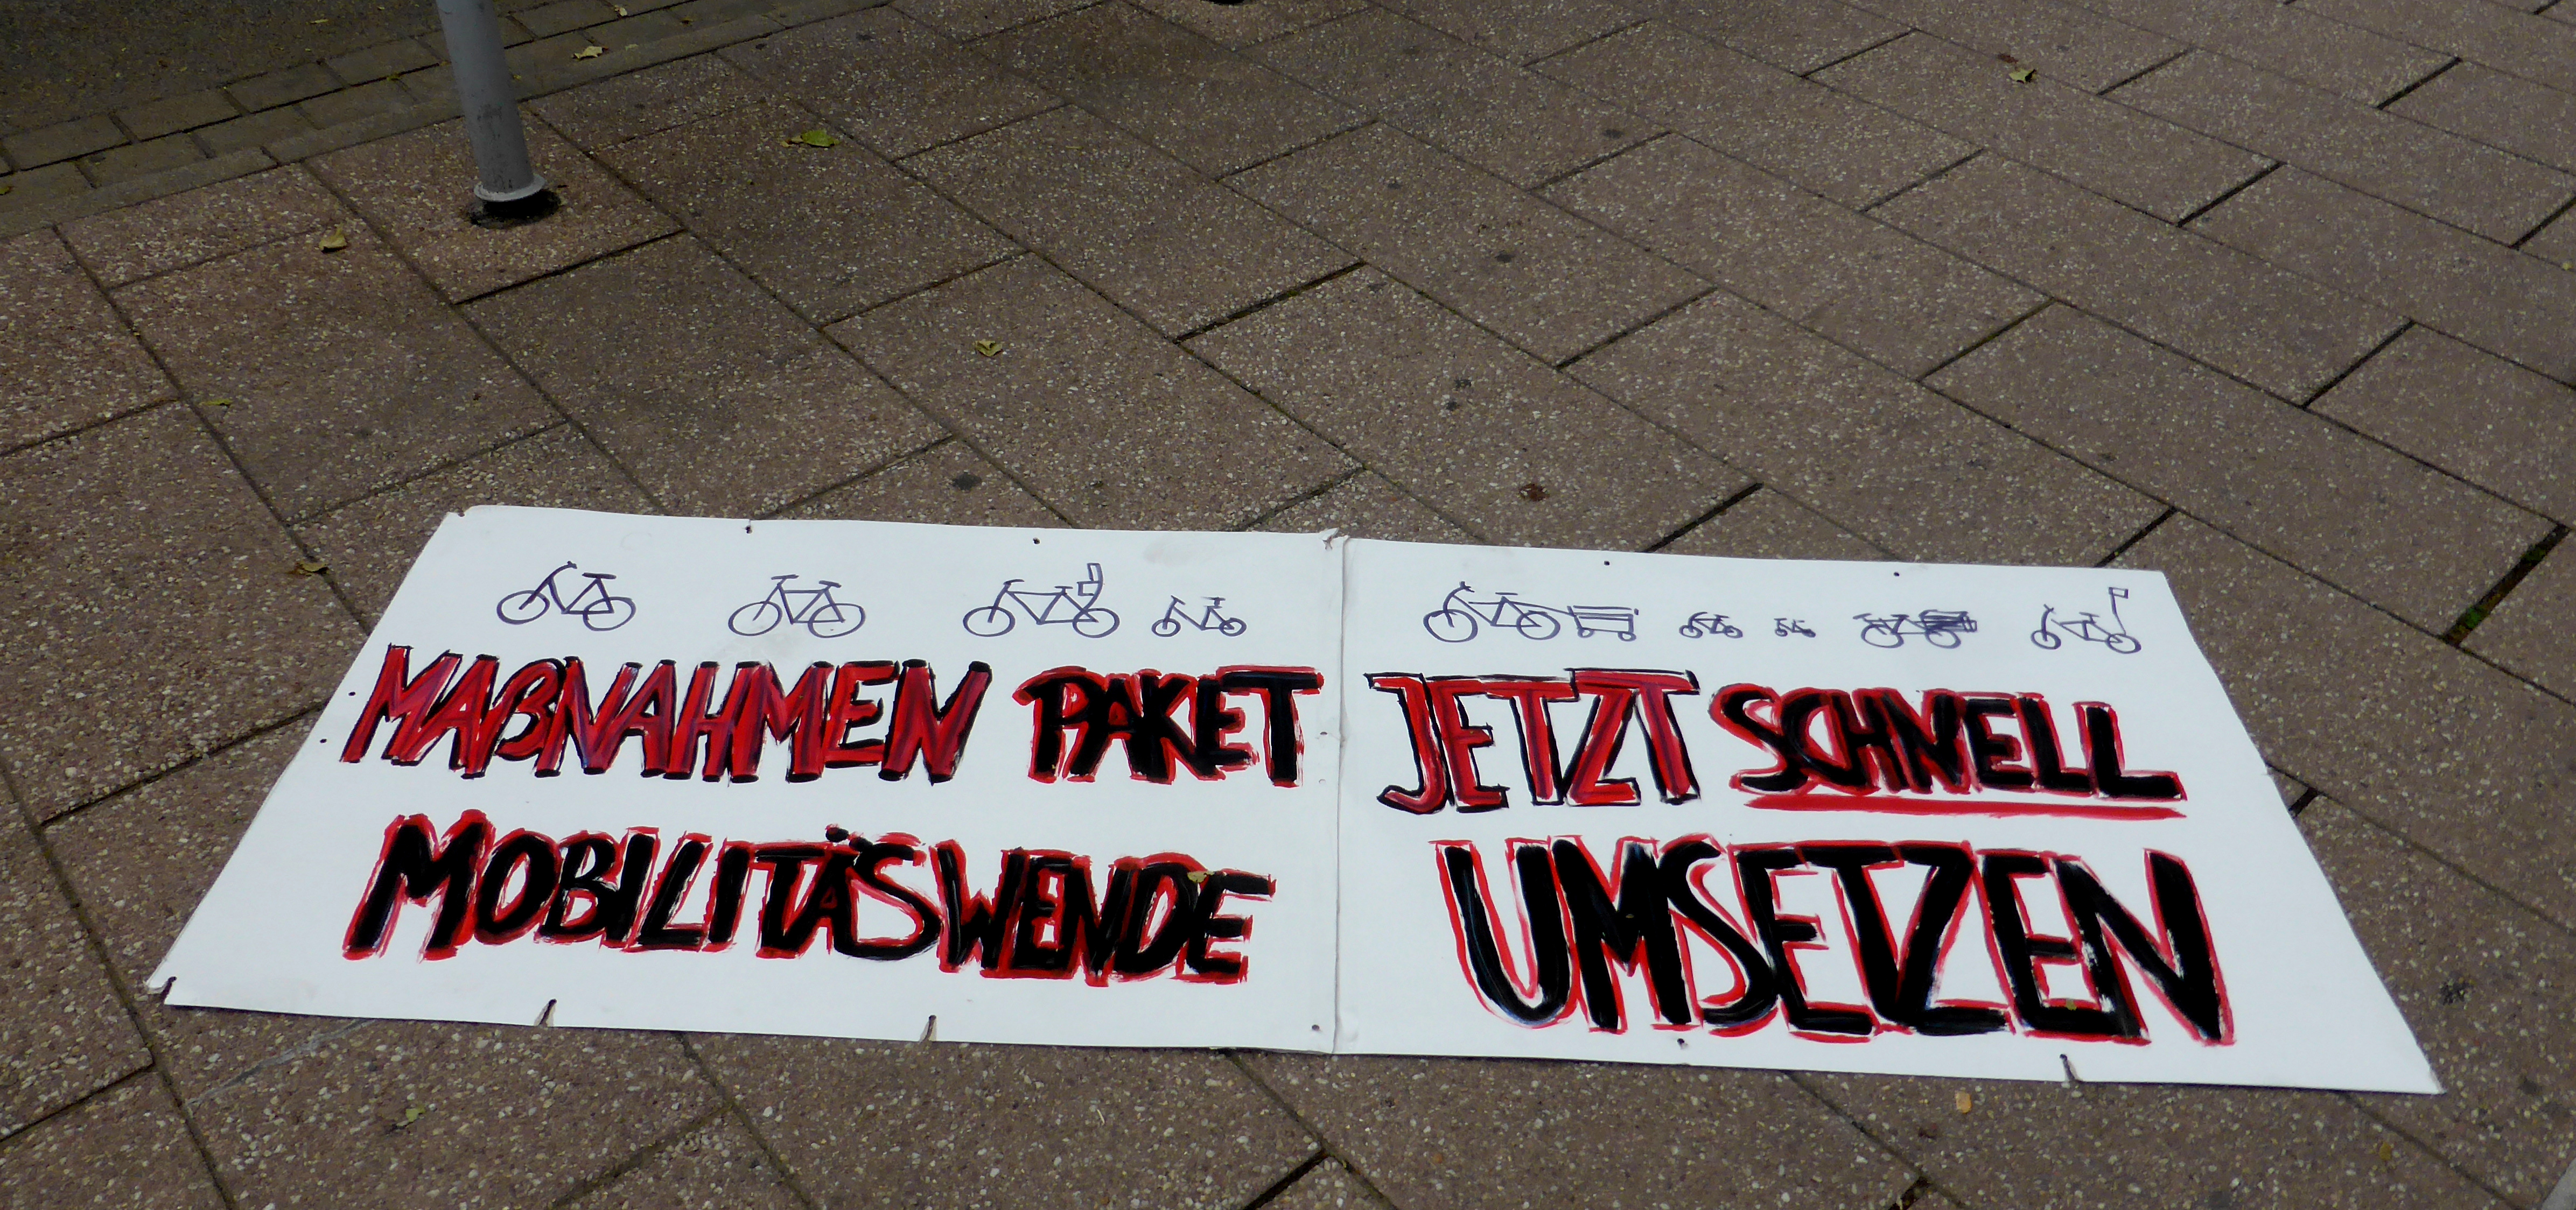 MAßNAHMEN PAKET
MOBILITÄSWENDE
JETZT SCHNELL
UMSETZEN